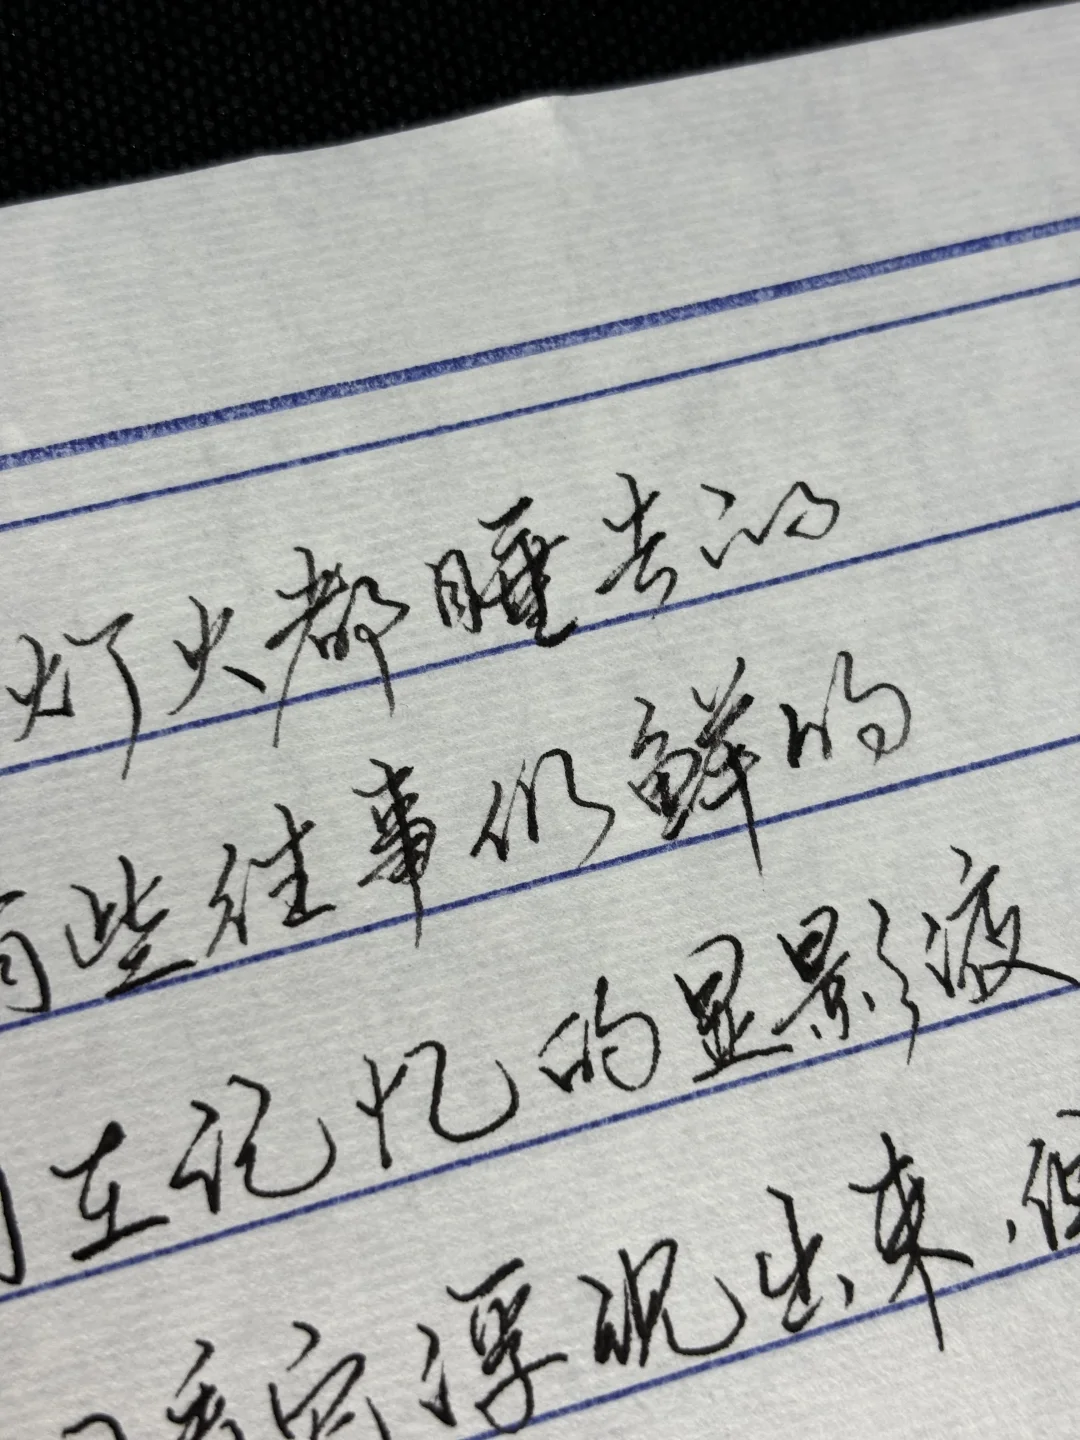 灯火都睡去的
有些往事仍鲜的
在记忆的显影液
浮现出来,但